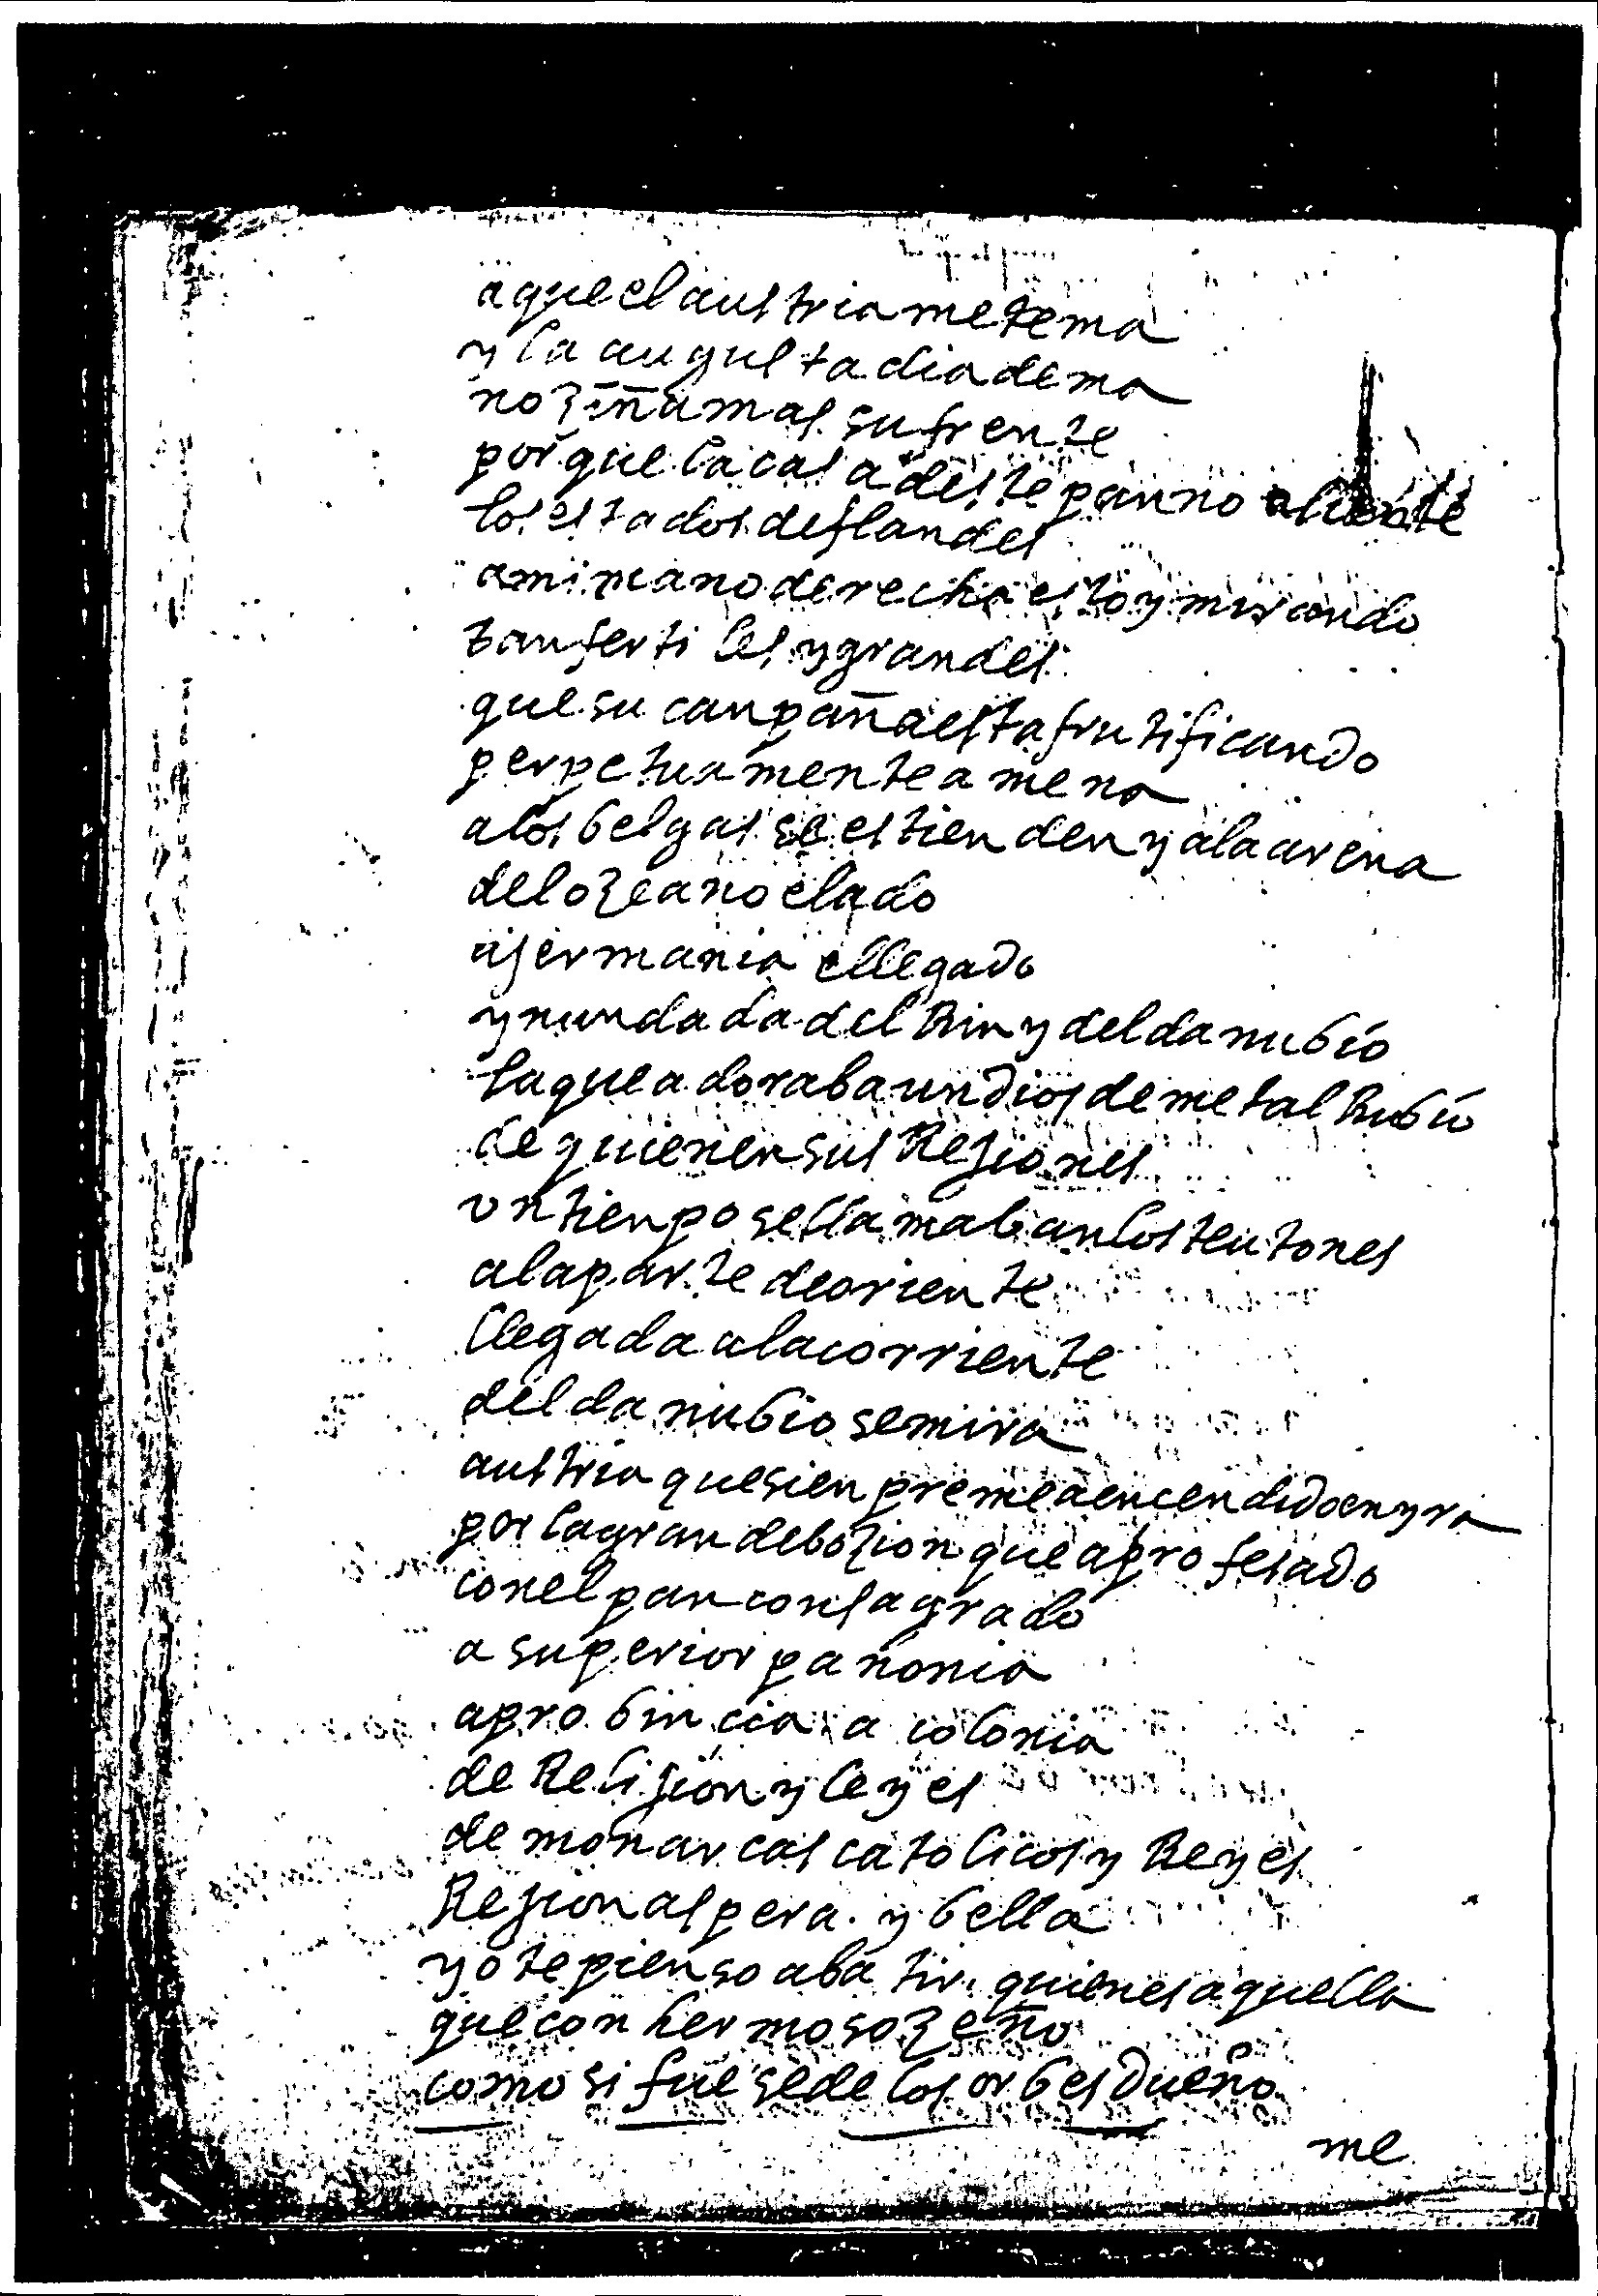 a que el austria me tema
y la augusta diadema
no ziña mas su frente
porque la casa deste pan no aliente
los estados de flandes
a mi mano derecha estoy mirando
tan fertiles y grandes
que su canpaña esta frutificando
perpetuamente amena
a los belgas se estienden y a la arena
del ozeano elado
a jermania e llegado
ynundada del Rin y del danubio
la que adoraba un dios de metal Rubio
de quien en sus Rejiones
un tienpo se llamaban los teutones
a la parte de oriente
llegada a la corriente
del danubio se mira
austria que sienpre me a encendido en yra
por la gran debozion que a profesado
con el pan consagrado
a superior panonia
a probincia a colonia
de Relijion y leyes
de monarcas catolicos y Reyes
Rejion aspera y bella
yo te pienso abatir. quien es aquella
que con hermoso zeño
como si fuese de los orbes dueño
me